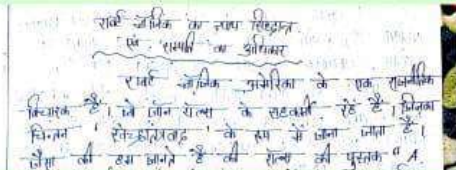 रार्बट नोजिक का न्याय सिद्धान्त
एवं सम्पति का अधिकार
रार्बट नोजिक अमेरिका के एक राजनीतिक
विचारक है। जो जॉन रॉल्स के सहकर्मी रहे है। जिनका
चिन्तन 'स्वेच्छातंत्रवाद' के रूप में जाना जाता है।
जैसा की हम जानते है की रॉल्स की पुस्तक " A.